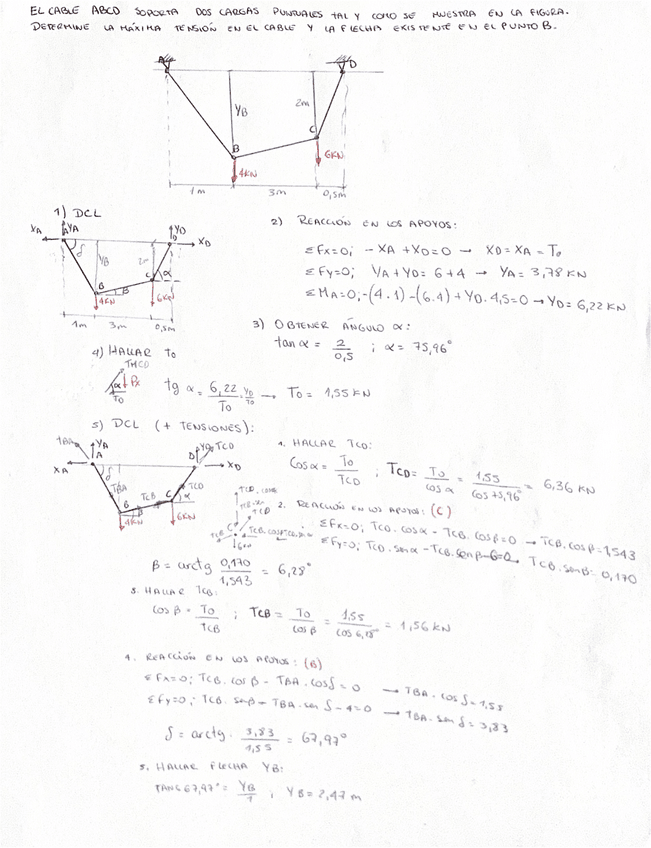 EL CABLE ABCD SOPORTA DOS CARGAS PUNTUALES TAL Y COMO SE MUESTRA EN LA FIGURA.
DETERMINE LA MÁXIMA TENSIÓN EN EL CABLE Y LA FLECHA EXISTENTE EN EL PUNTO B.
A D
YB 2m
B C
4KN 6KN
1m 3m 0,5m
1) DCL
XA YA A YD D XD
δ YB 2m
B β C α
4KN 6KN
1m 3m 0,5m
2) REACCIÓN EN LOS APOYOS:
ΣFx=0; -XA + XD = 0 → XD = XA = To
ΣFy=0; YA + YD = 6 + 4 → YA = 3,78 KN
ΣMA=0; -(4·1) - (6·4) + YD·4,5=0 → YD = 6,22 KN
3) OBTENER ÁNGULO α:
tan α = 2/0,5 ; α = 75,96°
4) HALLAR To
α To
tg α = 6,22/To = YD/To → To = 1,55 KN
5) DCL (+ TENSIONES):
TBA YA A D YD TCD
XA XD
δ TBA TCB TCD
B β C α
4KN 6KN
1. HALLAR TCD:
Cos α = To/TCD ; TCD = To/cos α = 1,55/cos 75,96° = 6,36 KN
2. REACCIÓN EN LOS APOYOS: (C)
ΣFx=0; TCD·cosα - TCB·cosβ=0 → TCB·cosβ=1,543
ΣFy=0; TCD·senα - TCB·senβ-6=0 → TCB·senβ= 0,170
β = arctg 0,170/1,543 = 6,28°
3. HALLAR TCB:
cos β = To/TCB ; TCB = To/cos β = 1,55/cos 6,28° = 1,56 KN
4. REACCIÓN EN LOS APOYOS: (B)
ΣFx=0; TCB·cosβ - TBA·cosδ = 0 → TBA·cosδ=1,55
ΣFy=0; TCB·senβ + TBA·sen δ - 4=0 → TBA·sen δ= 3,83
δ = arctg· 3,83/1,55 = 67,97°
5. HALLAR FLECHA YB:
TANG 67,97° = YB/1 ; YB = 2,47 m